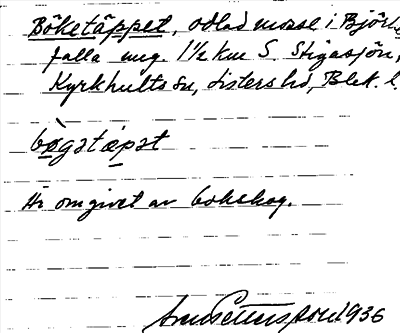 Böketäppet, odlad mosse i Björke
falla myg. 1½ km S. Stigasjön,
Kyrkhults sn, Listers hd, Blek. l.
bø̀gatɛpat
Är omgivet av bokskog.
1936